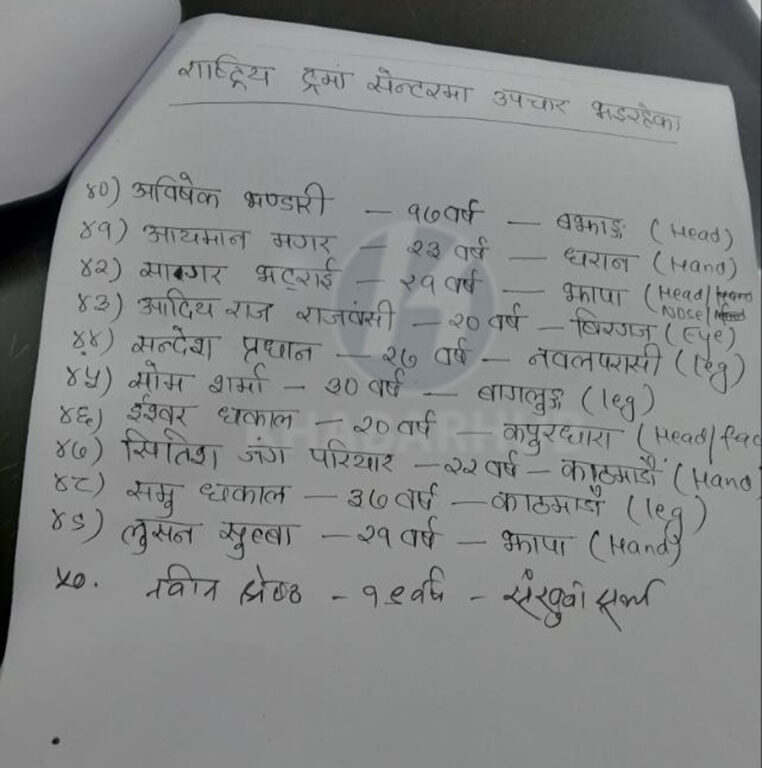 राष्ट्रिय ट्रमा सेन्टरमा उपचार भइरहेका
४०) अविषेक भण्डारी – १७ वर्ष – बझाङ (Head)
४१) आयमान मगर – २३ वर्ष – धरान (Hand)
४२) सागर भट्राई – २१ वर्ष – झापा (Head/
Nose/
४३) आदिय राज राजवंसी – २० वर्ष – बिरगज (Eye)
४४) सन्देश प्रधान – २७ वर्ष – नवलपरासी (leg)
४५) सोम शर्मा – ३० वर्ष – बागलुङ्ग (leg)
४६) ईश्वर ढकाल – २० वर्ष – कपुरधारा (Head/fac
४७) स्पितिश जंग परियार – २२ वर्ष – काठमाडौं (Hand
४८) समु ढकाल – ३७ वर्ष – काठमाडौं (leg)
४९) लुसन सुब्बा – २१ वर्ष – झापा (Hand)
५०. नवीन श्रेष्ठ – १९ वर्ष –